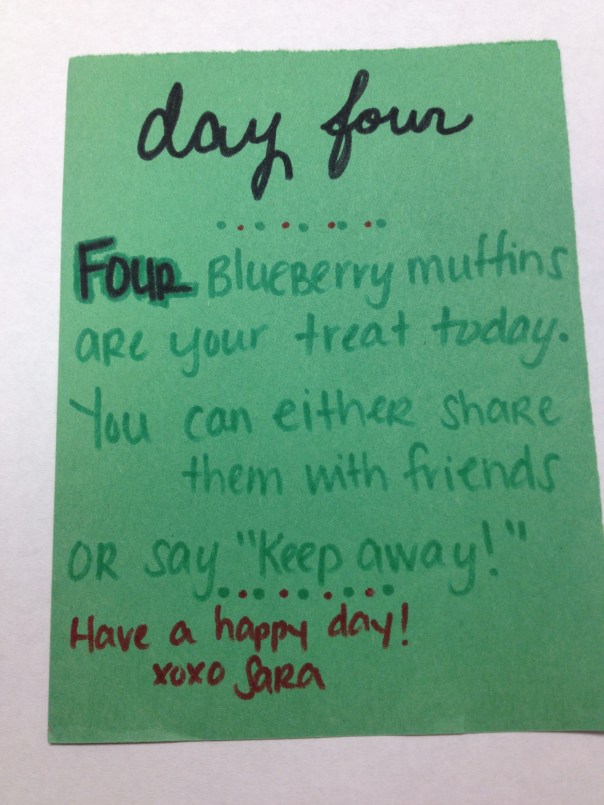 day four
FOUR Blueberry muffins
are your treat today.
You can either share
them with friends
OR say "Keep away!"
Have a happy day!
xoxo Sara